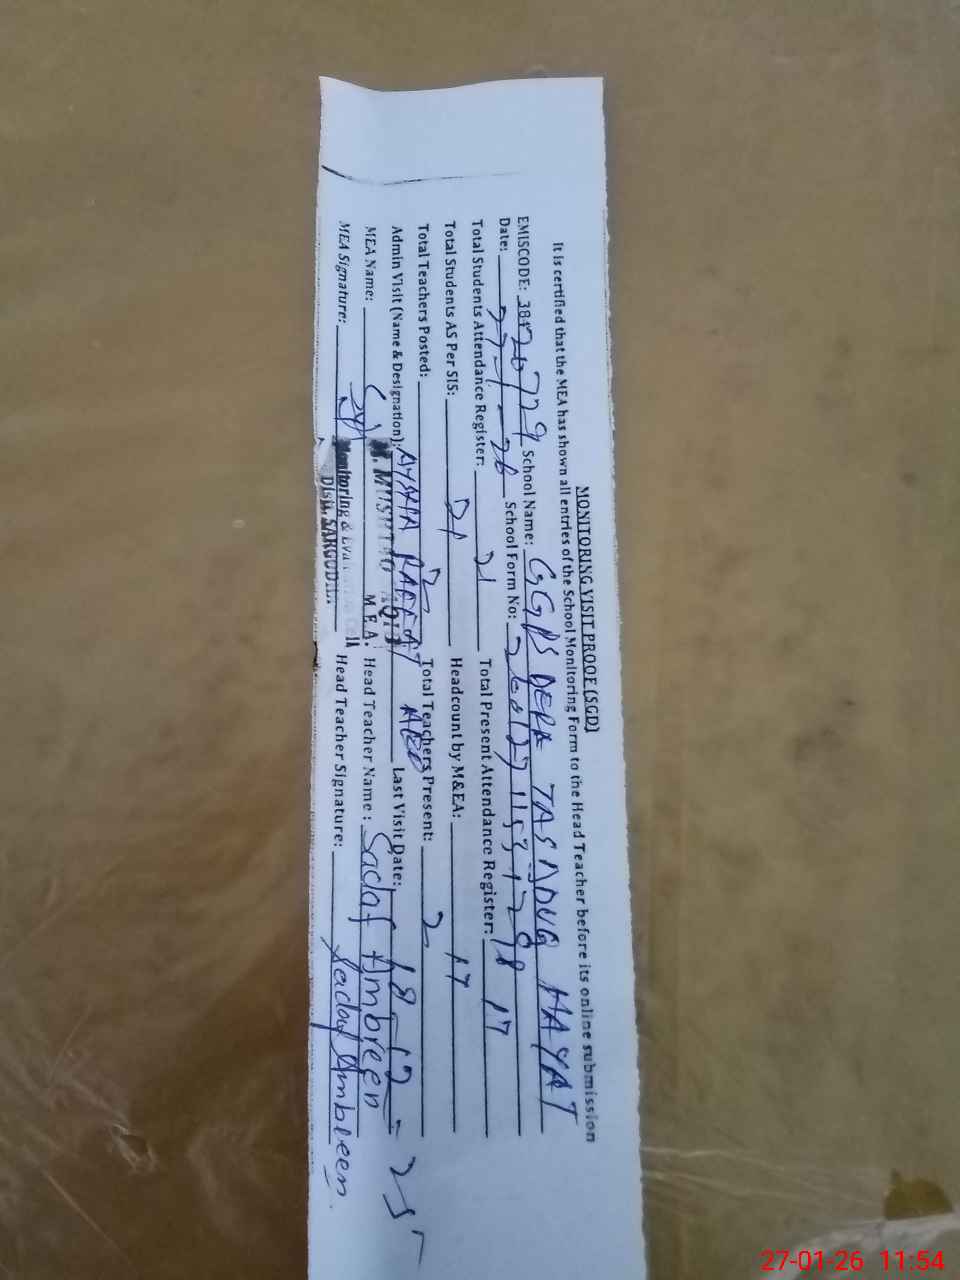 MONITORING VISIT PROOF (SGD)
It is certified that the MEA has shown all entries of the School Monitoring Form to the Head Teacher before its online submission
EMISCODE: 38426729 School Name: GGPS DERA TASADUQ HAYAT
Date: 27-1-26 School Form No:
Total Students Attendance Register: 21 Total Present Attendance Register: 17
Total Students AS Per SIS: 21 Headcount by M&EA: 17
Total Teachers Posted: 2 Total Teachers Present: 2
Admin Visit (Name & Designation): AYSHA RAFFAT AEO Last Visit Date: 18-12-25
MEA Name: M. MUSHTAQ M.E.A. Head Teacher Name: Sadaf Ambreen
MEA Signature: Monitoring & Evaluation Cell Head Teacher Signature: Sadaf Ambreen
Distt. SARGODHA.
27-01-26 11:54